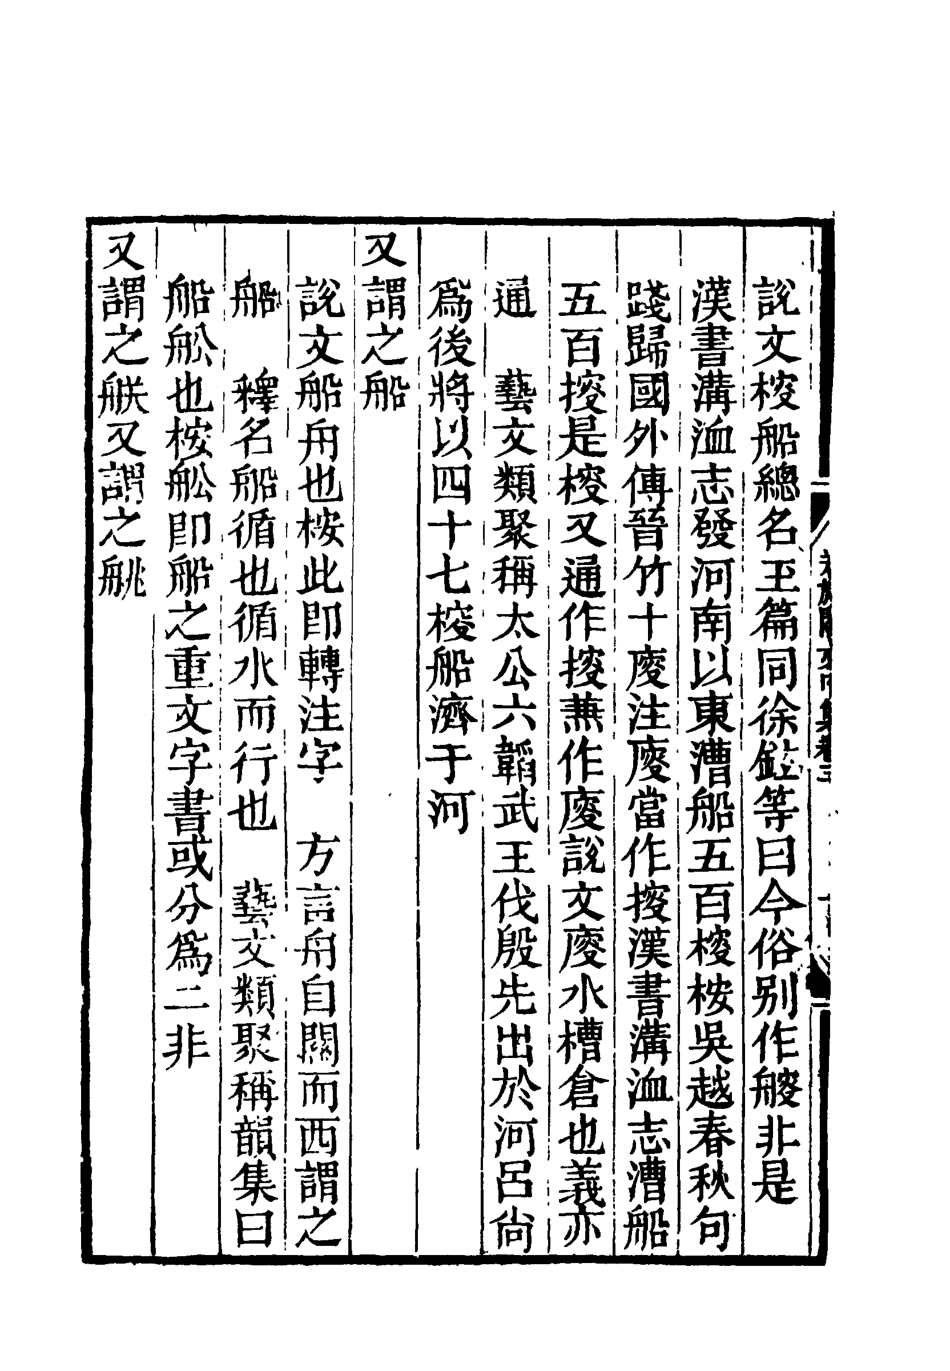 說文㮴船總名玉篇同徐鉉等曰今俗別作艘非是
漢書溝洫志發河南以東漕船五百㮴桉吳越春秋句
踐歸國外傳晉竹十廋注廋當作㨶漢書溝洫志漕船
五百㨶是㮴又通作㨶兼作廋說文廋水槽倉也義亦
通　藝文類聚稱太公六韜武王伐殷先出於河呂尙
爲後將以四十七㮴船濟于河
又謂之船
說文船舟也桉此卽轉注字　方言舟自關而西謂之
船　釋名船循也循水而行也　藝文類聚稱韻集曰
船舩也桉舩卽船之重文字書或分爲二非
又謂之艄又謂之艞